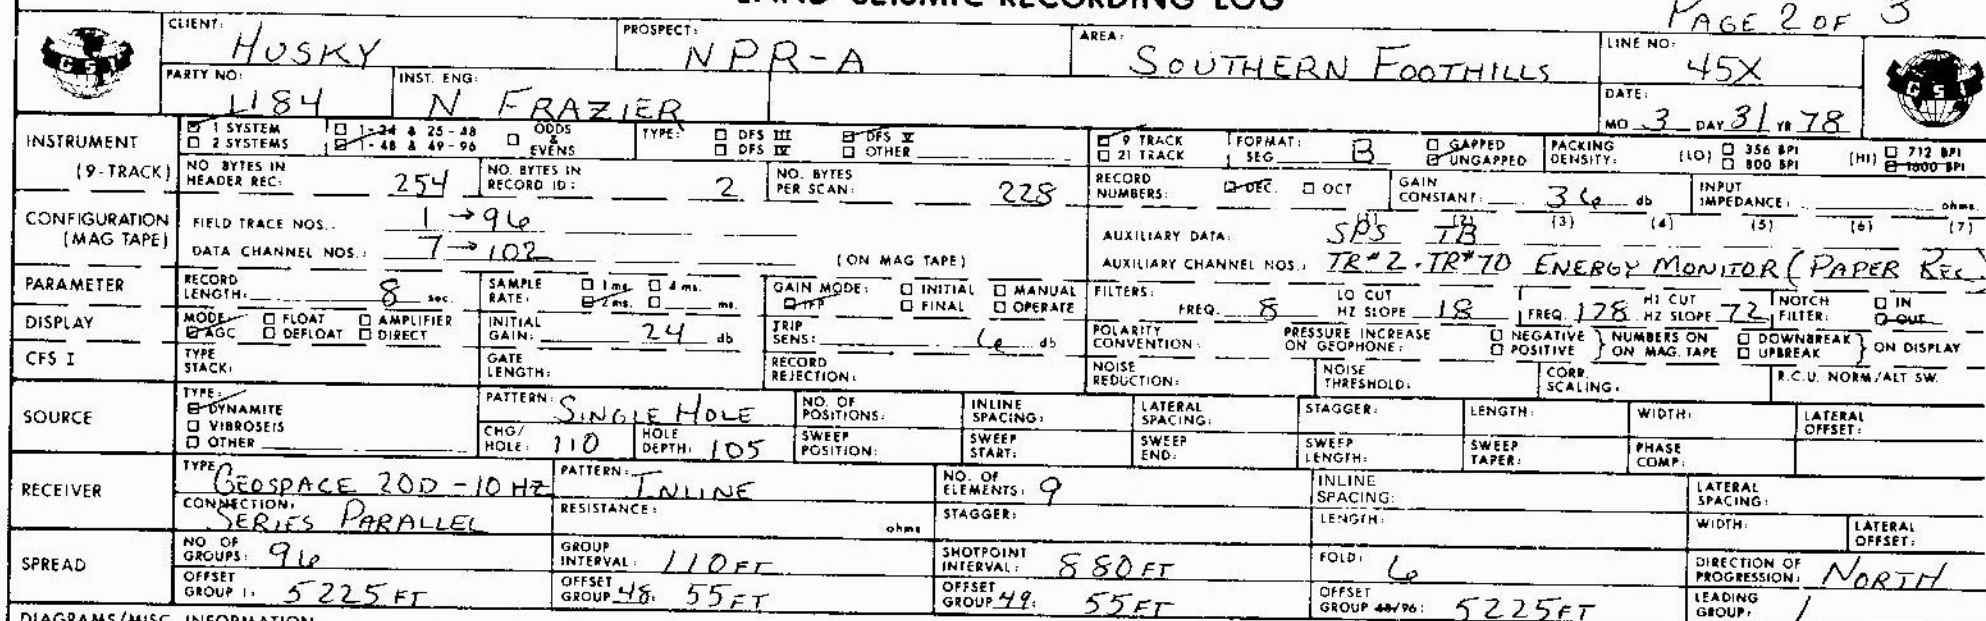 LAND SEISMIC RECORDING LOG
PAGE 2 OF 3
CLIENT: HUSKY PROSPECT: NPR-A AREA: SOUTHERN FOOTHILLS LINE NO: 45X
GSI
PARTY NO: 1184 INST. ENG: N FRAZIER DATE: MO 3 DAY 31 YR 78
GSI
INSTRUMENT (9-TRACK)
1 SYSTEM 1-24 & 25-48 ODDS & EVENS TYPE: DFS III DFS V 9 TRACK FORMAT: SEG B GAPPED PACKING DENSITY: (LO) 356 BPI (HI) 712 BPI
2 SYSTEMS 1-48 & 49-96 DFS IV OTHER 21 TRACK UNGAPPED 800 BPI 1600 BPI
NO. BYTES IN HEADER REC: 254 NO. BYTES IN RECORD ID: 2 NO. BYTES PER SCAN: 228 RECORD NUMBERS: DEC. OCT GAIN CONSTANT: 36 db INPUT IMPEDANCE: ohms.
CONFIGURATION (MAG TAPE)
FIELD TRACE NOS.. 1→96 AUXILIARY DATA: (1) SPS (2) TB (3) (4) (5) (6) (7)
DATA CHANNEL NOS.: 7→102 (ON MAG TAPE) AUXILIARY CHANNEL NOS.: TR#2. TR#70 ENERGY MONITOR (PAPER REC)
PARAMETER
RECORD LENGTH: 8 sec. SAMPLE RATE: 1 ms. 4 ms. 2 ms. ms. GAIN MODE: INITIAL MANUAL IFP FINAL OPERATE FILTERS: FREQ. 8 LO CUT HZ SLOPE 18 FREQ. 178 HI CUT HZ SLOPE 72 NOTCH FILTER: IN OUT
DISPLAY
MODE FLOAT AMPLIFIER AGC DEFLOAT DIRECT INITIAL GAIN: 24 db TRIP SENS: 6 db POLARITY CONVENTION: PRESSURE INCREASE ON GEOPHONE: NEGATIVE POSITIVE } NUMBERS ON MAG. TAPE DOWNBREAK UPBREAK } ON DISPLAY
CFS I
TYPE STACK: GATE LENGTH: RECORD REJECTION: NOISE REDUCTION: NOISE THRESHOLD: CORR. SCALING: R.C.U. NORM/ALT SW.
SOURCE
TYPE: DYNAMITE VIBROSEIS OTHER
PATTERN: SINGLE HOLE NO. OF POSITIONS: INLINE SPACING: LATERAL SPACING: STAGGER: LENGTH: WIDTH: LATERAL OFFSET:
CHG/HOLE: 110 HOLE DEPTH: 105 SWEEP POSITION: SWEEP START: SWEEP END: SWEEP LENGTH: SWEEP TAPER: PHASE COMP:
RECEIVER
TYPE GEOSPACE 20D-10HZ PATTERN: INLINE NO. OF ELEMENTS: 9 INLINE SPACING: LATERAL SPACING:
CONNECTION: SERIES PARALLEL RESISTANCE: ohms STAGGER: LENGTH: WIDTH: LATERAL OFFSET:
SPREAD
NO OF GROUPS: 96 GROUP INTERVAL: 110FT SHOTPOINT INTERVAL: 880FT FOLD: 6 DIRECTION OF PROGRESSION: NORTH
OFFSET GROUP 1: 5225FT OFFSET GROUP 48: 55FT OFFSET GROUP 49: 55FT OFFSET GROUP 48/96: 5225FT LEADING GROUP: 1
DIAGRAMS/MISC. INFORMATION